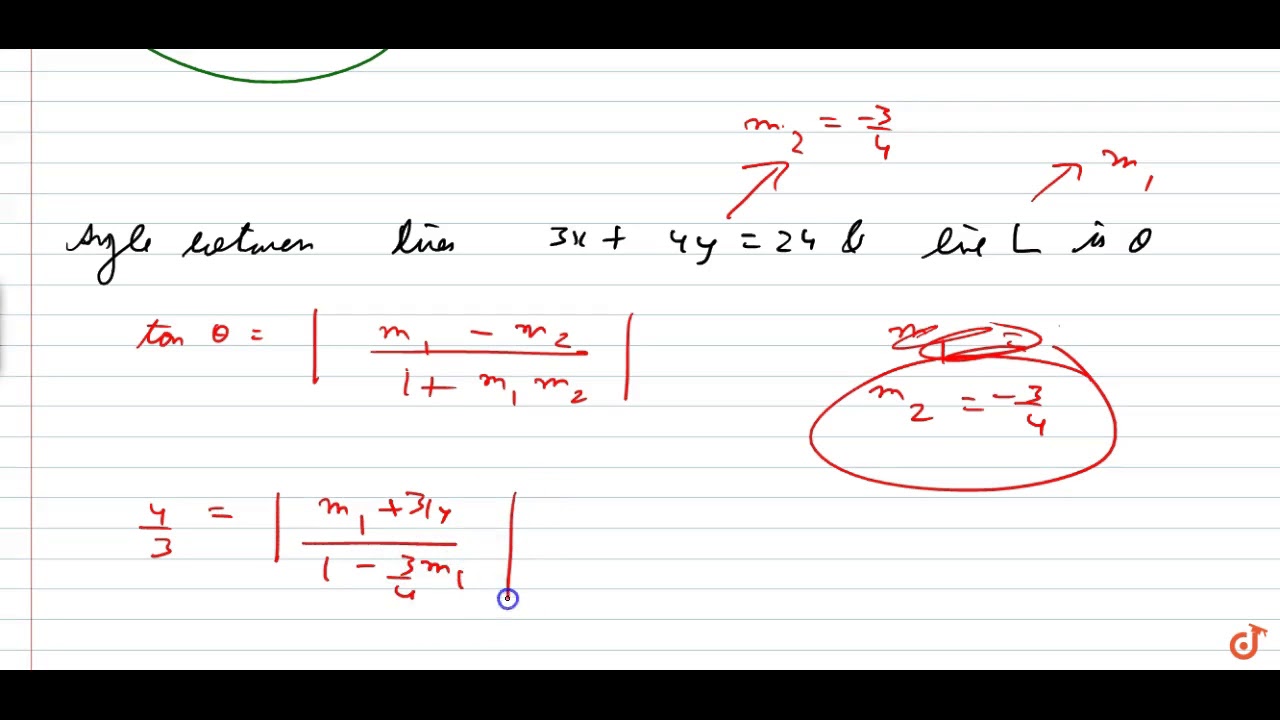 m₂ = -3/4
m₁
Angle between lines 3x + 4y = 24 & line L is θ
tan θ = | (m₁ - m₂) / (1 + m₁ m₂) |
m₂ = -3/4
4/3 = | (m₁ + 3/4) / (1 - 3/4 m₁) |